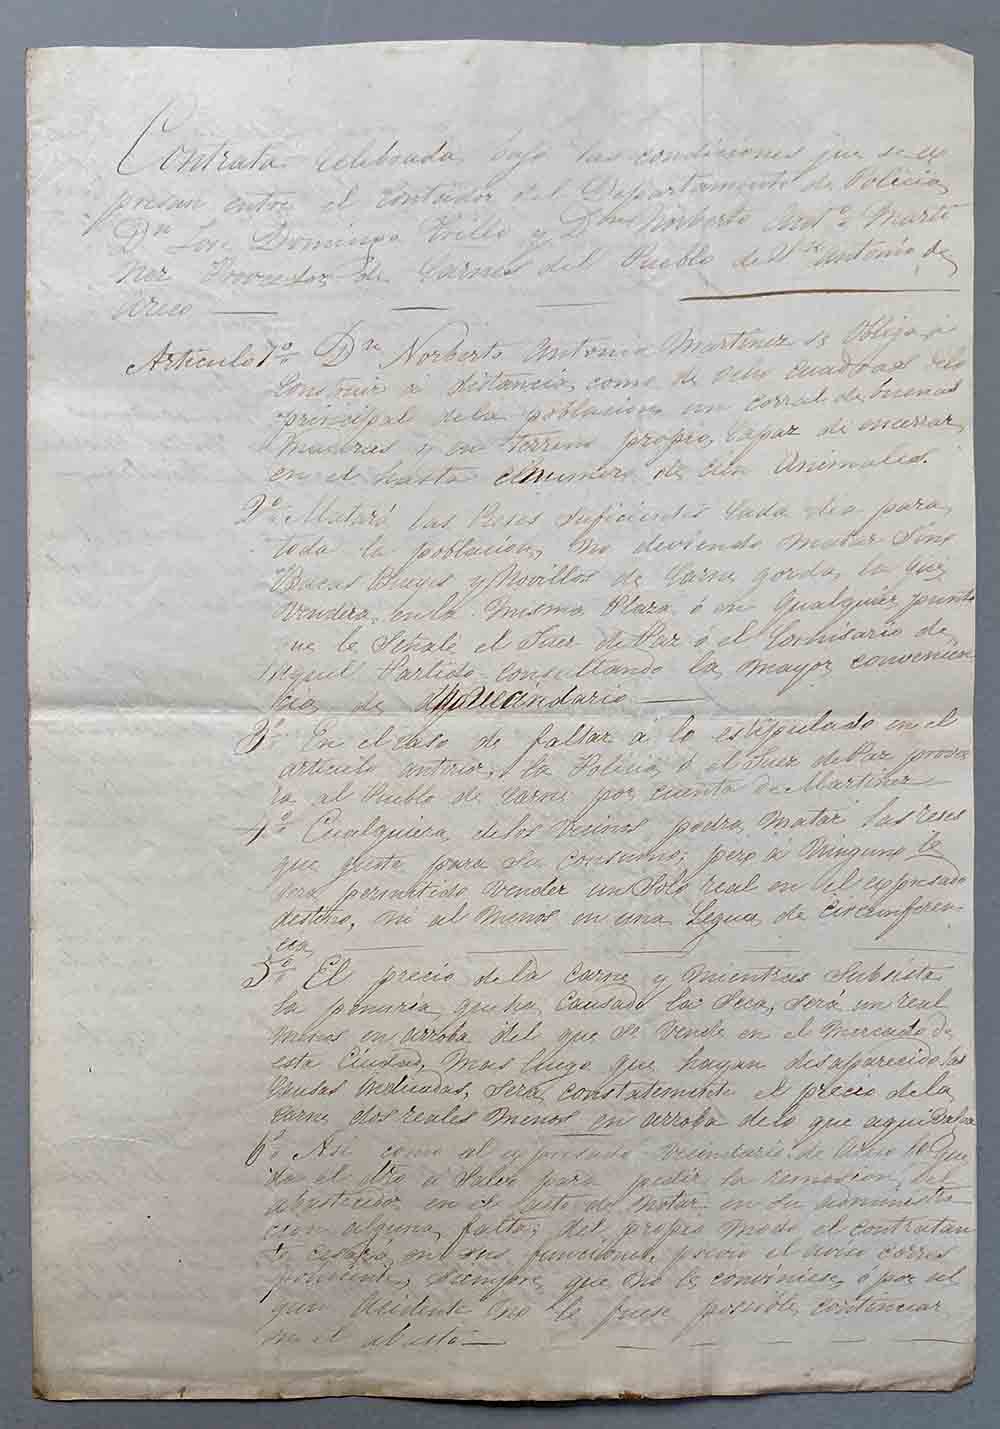 Contrata celebrada bajo las condiciones que se ex
presan entre el contador del Departamento de Policia
Dn José Domingo Trillo y Dn Norberto Anto Marti
nez Proveedor de Carnes del Pueblo de Sn Antonio de
Areco
Articulo 1o Dn Norberto Antonio Martinez se obliga a
construir á distancia como de ocho cuadras de lo
principal de la poblacion un corral de buenas
Maderas y en terreno propio, capaz de encerrar
en el hasta el numero de cien Animales.
2o Matará las Reses suficientes cada dia para
toda la poblacion, no deviendo matar Sino
Bacas Bueyes y Novillos de Carne gorda, la que
vendera en la misma Plaza ó en qualquier punto
que le Señale el Juez de Paz ó el Comisario de
Aquel Partido consultando la mayor convenien
cia de aquel vecindario
3o En el caso de faltar á lo estipulado en el
articulo anterior, la Policia ó el Juez de Paz provee
ra al Pueblo de carne por cuenta de Martinez
4o Cualquiera de los Vecinos podra Matar las reses
que guste para su consumo; pero á Ninguno le
sera permitido vender un Solo real en el expresado
destino, ni al menos en una Legua de circunferen-
cia
5o El precio de la carne y mientras Subsista
la penuria que ha causado la Seca, será un real
menos en arroba del que se vende en el Mercado de
esta Ciudad, mas luego que hayan desaparecido las
causas indicadas, sera constantemente el precio de la
carne dos reales menos en arroba de lo que aqui valga
6o Asi como al expresado vecindario de Areco le que
da el dro á salvo para pedir la remocion del
abastecedor en el acto de notar en su administra
cion alguna falta; del propio modo el contratan
te cesara en sus funciones, previo el aviso corres
pondiente, siempre que no le conviniese, ó por al
gun Acidente no le fuese posible continuar
en el abasto